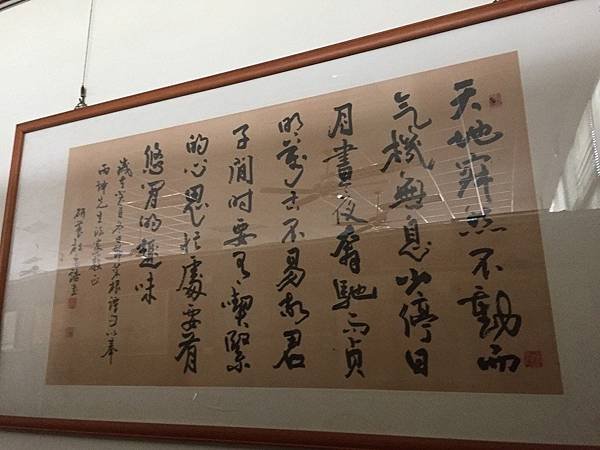 天地寂然不動而
气機無息少停日
月晝夜奔馳而貞
明萬古不易故君
子閒时要有喫緊
的心思忙處要有
悠閒的趣味
菜根譚句以奉
先生